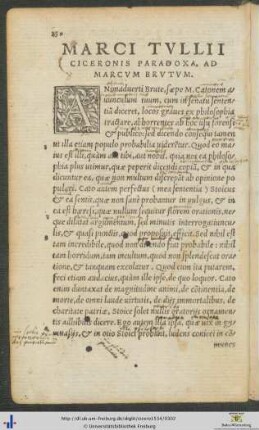 MARCI TVLLII
CICERONIS PARADOXA, AD
MARCVM BRVTVM.
ANimaduerti Brute, sæpe M. Catonem a-
uunculum tuum, cum in senatu senten-
tiā diceret, locos graues ex philosophia
tractare, abhorrentes ab hoc usu forense
& publico: sed dicendo consequi tamen
ut illa etiam populo probabilia uiderētur. Quod eo ma-
ius est illi, quàm aut tibi, aut nobis, quia nos ea philoso-
phia plus utimur, quæ peperit dicendi copiā, & in qua
dicuntur ea, quæ non multum discrepāt ab opinione po-
pulari. Cato autem perfectus (mea sententia) Stoicus
& ea sentit, quæ non sanè probantur in uulgus, & in
ea est hæresi, quæ nullum sequitur florem orationis, ne-
que dilatat argumentum, sed minutis interrogatiuncu-
lis, & quasi punctis, quod proposuit, efficit. Sed nihil est
tam incredibile, quod non dicendo fiat probabile: nihil
tam horridum, tam incultum, quod non splendescat orati-
one, & tanquam excolatur. Quod cum ita putarem,
feci etiam audacius, quàm ille ipse, de quo loquor. Cato
enim duntaxat de magnitudine animi, de cōtinentia, de
morte, de omni laude uirtutis, de dijs immortalibus, de
charitate patriæ, Stoice solet nullis oratorijs ornamen-
tis adhibitis dicere. Ego autem illa ipsa, quæ uix in gy-
mnasijs, & in otio Stoici probant, ludens conieci in cō-
munes
http://dl.ub.uni-freiburg.de/diglit/cicero1534/0002
© Universitätsbibliothek Freiburg